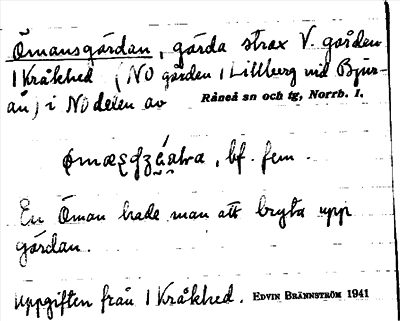 Ömansgärdan, gärda strax V. gården
1 Kråkhed (NO gården 1 Lillberg vid Bjur-
ån) i NO delen av Råneå sn och tg, Norrb. l.
, bf. fem.
En Öman hade man att bryta upp
gärdan.
Uppgiften från 1 Kråkhed. EDVIN BRÄNNSTRÖM 1941